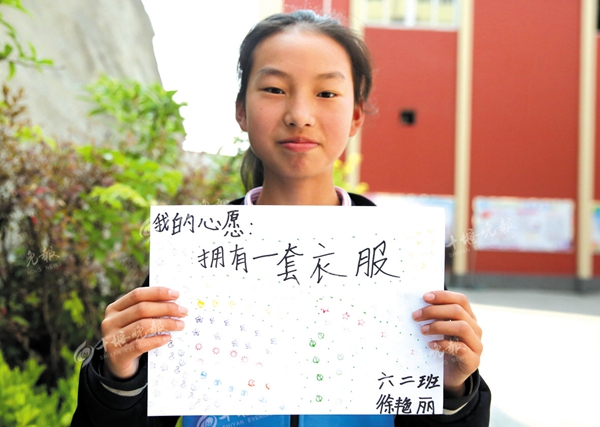 我的心愿：
拥有一套衣服
六二班
徐艳丽